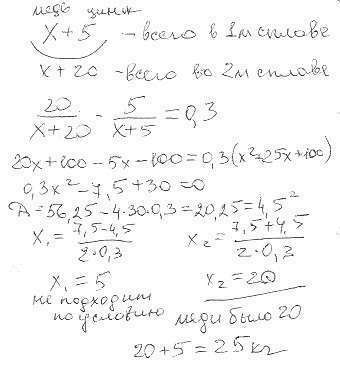 медь цинк
x+5 - всего в 1м сплаве
x+20 - всего во 2м сплаве
20/(x+20) - 5/(x+5) = 0,3
20x+100-5x-100=0,3(x²+25x+100)
0,3x²-7,5+30=0
Д=56,25-4·30·0,3=20,25=4,5²
x₁=(7,5-4,5)/(2·0,3) x₂=(7,5+4,5)/(2·0,3)
x₁=5 x₂=20
не подходит
по условию меди было 20
20+5=25кг